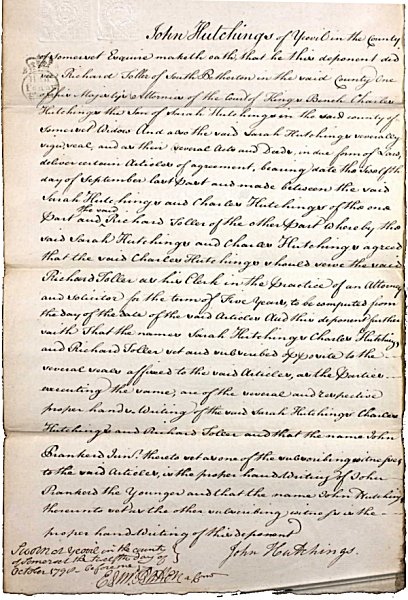 John Hutchings of Yeovil in the County
of Somerset Esquire maketh oath, that he this deponent did
see Richard Toller of South Petherton in the said County One
of his Majestys Attornies of the Court of Kings Bench Charles
Hutchings the Son of Sarah Hutchings in the said county of
Somerset Widow And also the said Sarah Hutchings severally
sign, seal, and as their several Acts and Deeds, in due form of Law,
deliver certain Articles of agreement, bearing date the twelfth
day of September last past and made between the said
Sarah Hutchings and Charles Hutchings of the one
Part and the said Richard Toller of the other Part whereby the
said Sarah Hutchings and Charles Hutchings agreed
that the said Charles Hutchings should serve the said
Richard Toller as his Clerk in the Practice of an Attorney
and Solicitor for the term of Five Years, to be computed from
the day of the date of the said Articles And this deponent further
saith That the names Sarah Hutchings Charles Hutchings
and Richard Toller set and subscribed opposite to the
several seals affixed to the said Articles, as the Parties
executing the same, are of the several and respective
proper hands Writing of the said Sarah Hutchings Charles
Hutchings and Richard Toller and that the name John
Junr. thereto set as one of the subscribing witnesses
to the said Articles, is the proper hand Writing of John
the Younger and that the name John Hutchings
thereunto set as the other subscribing witness is the
proper hand Writing of this deponent
Sworn at Yeovil in the county
of Somerset the twelfth day of
October 179 before me
John Hutchings.